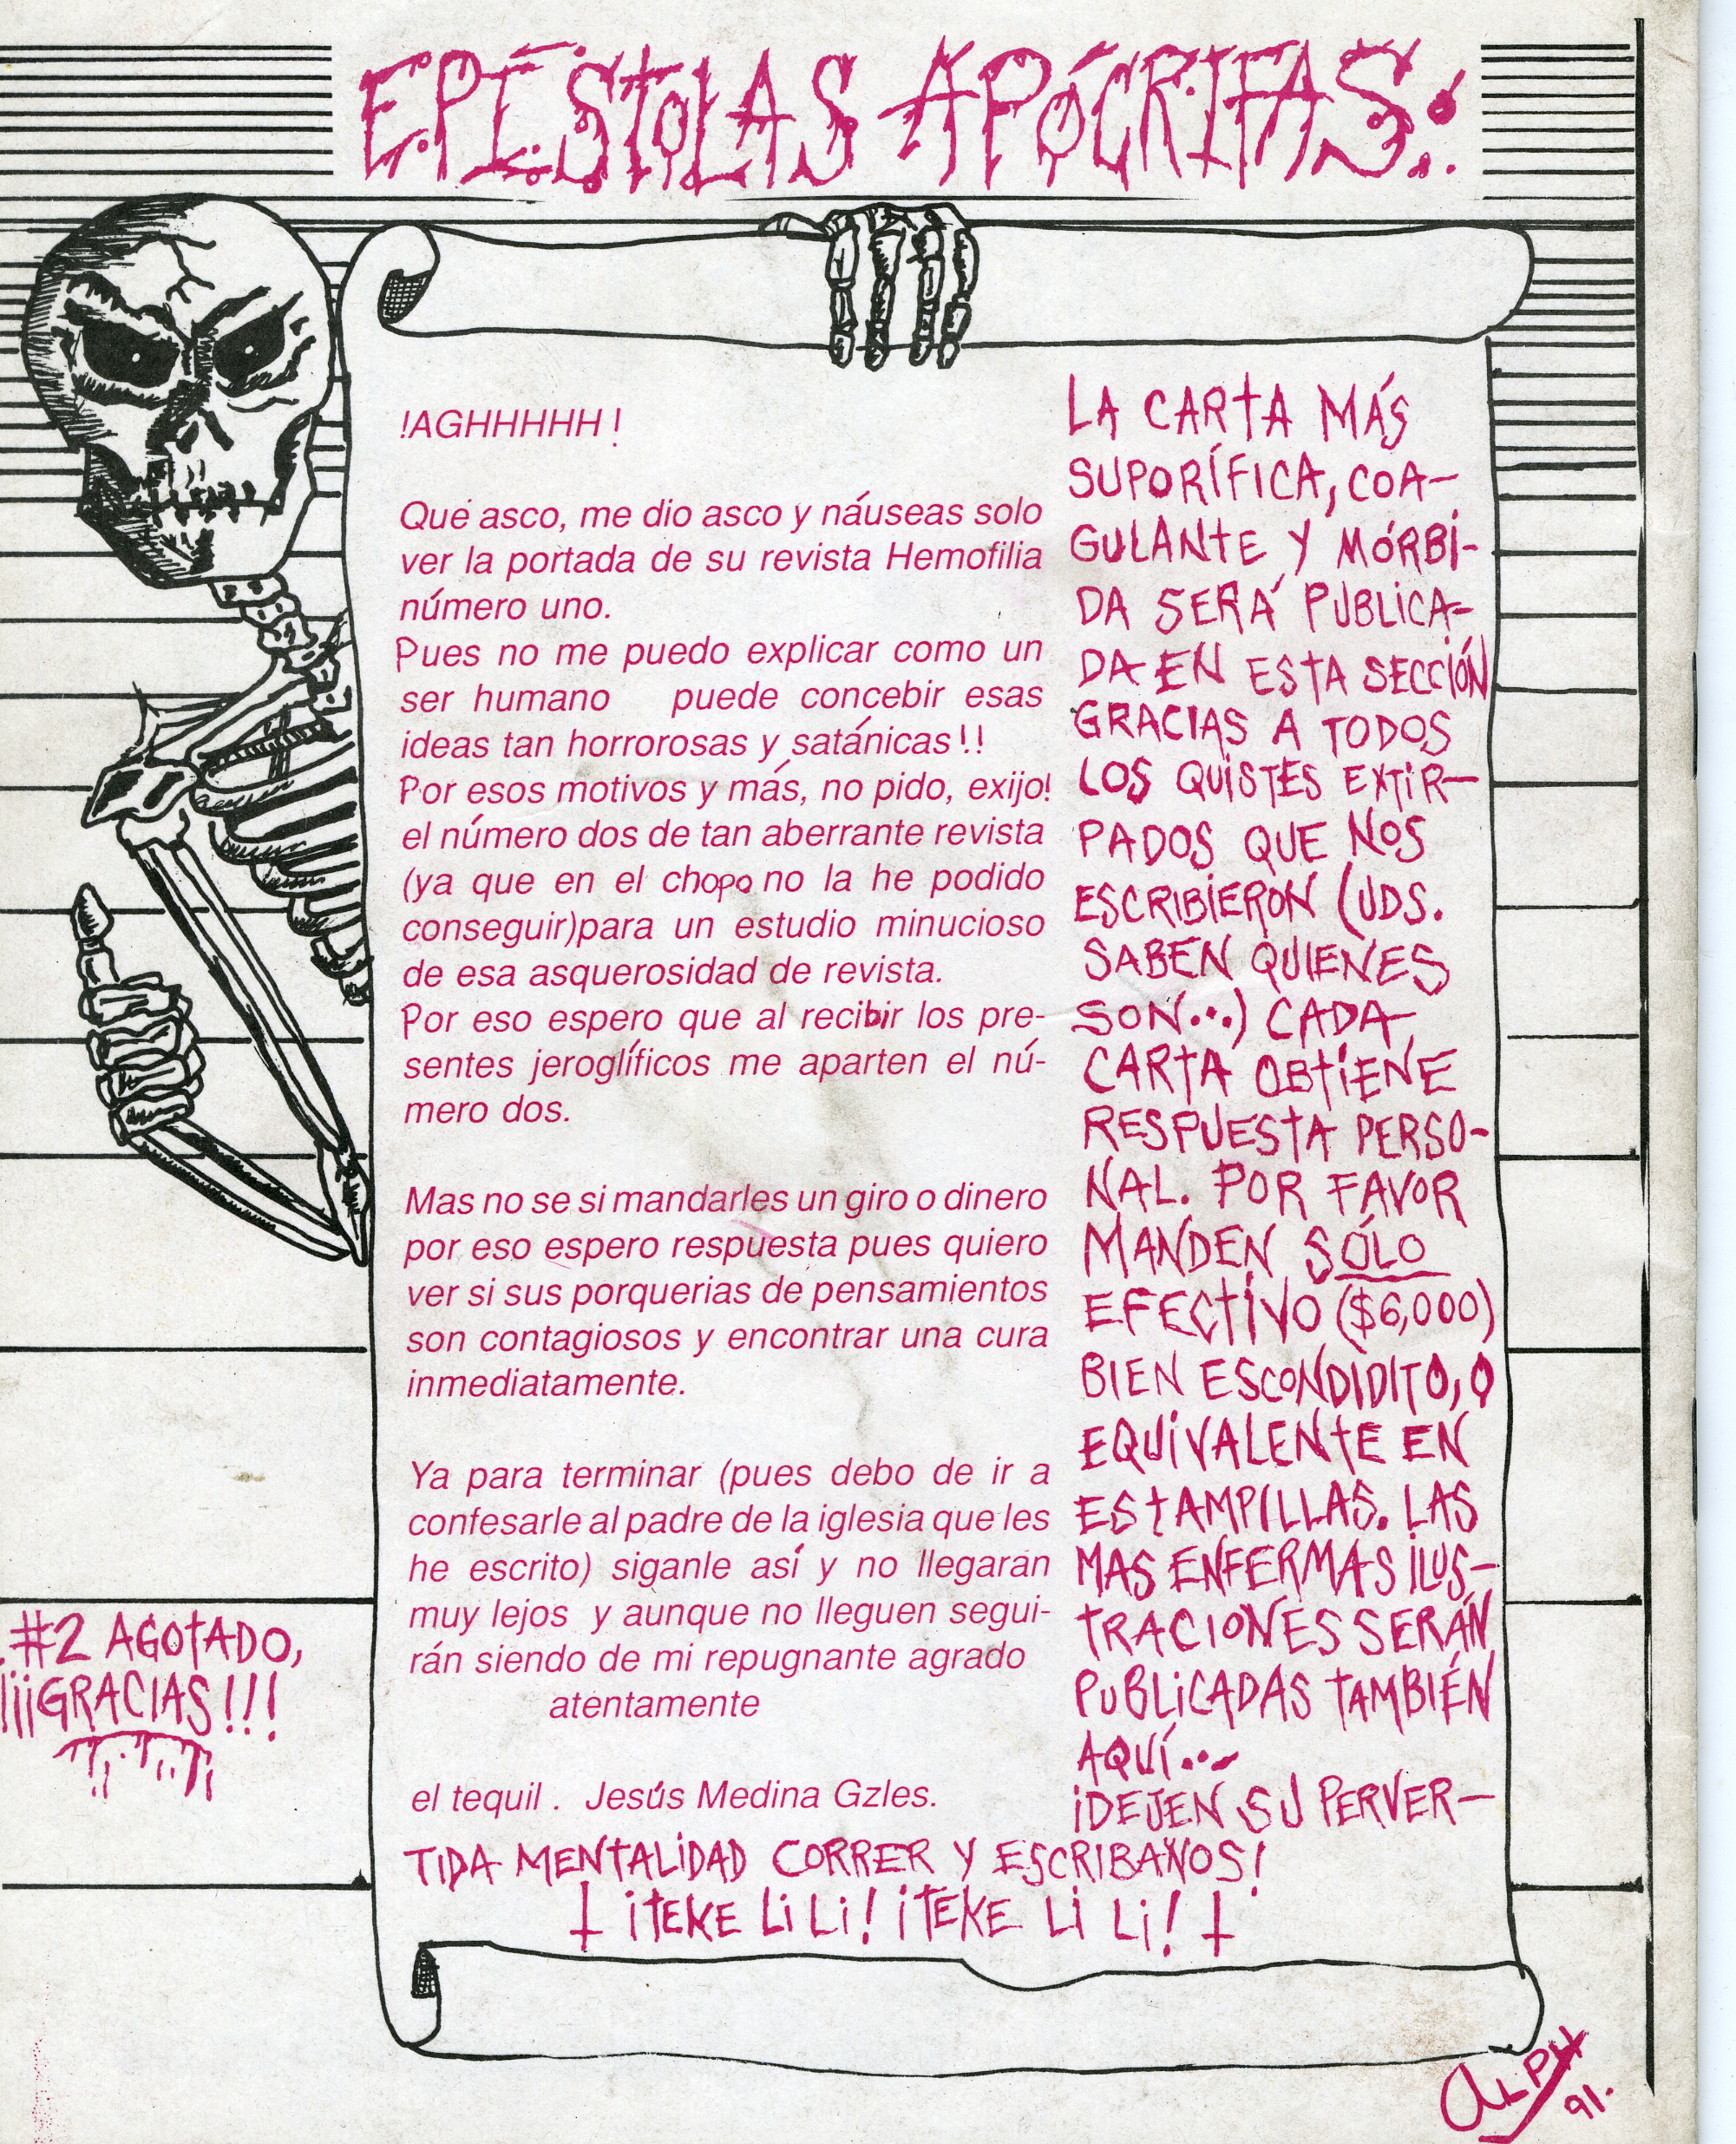 EPÍSTOLAS APÓCRIFAS:
!AGHHHHH !
Que asco, me dio asco y náuseas solo
ver la portada de su revista Hemofilia
número uno.
Pues no me puedo explicar como un
ser humano puede concebir esas
ideas tan horrorosas y satánicas !!
Por esos motivos y más, no pido, exijo!
el número dos de tan aberrante revista
(ya que en el chopo no la he podido
conseguir)para un estudio minucioso
de esa asquerosidad de revista.
Por eso espero que al recibir los pre-
sentes jeroglíficos me aparten el nú-
mero dos.
Mas no se si mandarles un giro o dinero
por eso espero respuesta pues quiero
ver si sus porquerias de pensamientos
son contagiosos y encontrar una cura
inmediatamente.
Ya para terminar (pues debo de ir a
confesarle al padre de la iglesia que les
he escrito) siganle así y no llegaran
muy lejos y aunque no lleguen segui-
rán siendo de mi repugnante agrado
atentamente
el tequil . Jesús Medina Gzles.
LA CARTA MÁS
SUPORÍFICA, COA-
GULANTE Y MÓRBI-
DA SERÁ PUBLICA-
DA EN ESTA SECCIÓN
GRACIAS A TODOS
LOS QUISTES EXTIR-
PADOS QUE NOS
ESCRIBIERON (UDS.
SABEN QUIENES
SON...) CADA
CARTA OBTIENE
RESPUESTA PERSO-
NAL. POR FAVOR
MANDEN SÓLO
EFECTIVO ($6,000)
BIEN ESCONDIDITO, O
EQUIVALENTE EN
ESTAMPILLAS. LAS
MAS ENFERMAS ILUS-
TRACIONES SERÁN
PUBLICADAS TAMBIÉN
AQUÍ...
¡DEJEN SU PERVER-
TIDA MENTALIDAD CORRER Y ESCRIBANOS!
¡TEKE LI LI! ¡TEKE LI LI!
#2 AGOTADO,
¡¡¡GRACIAS!!!
ALPH
91.